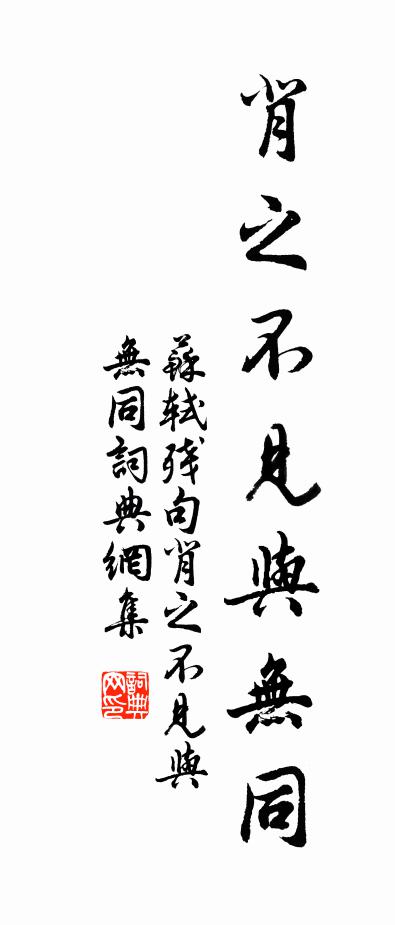 肖之不見與無同
蘇軾殘句肖之不見與
無同詞典網集
詞典网印